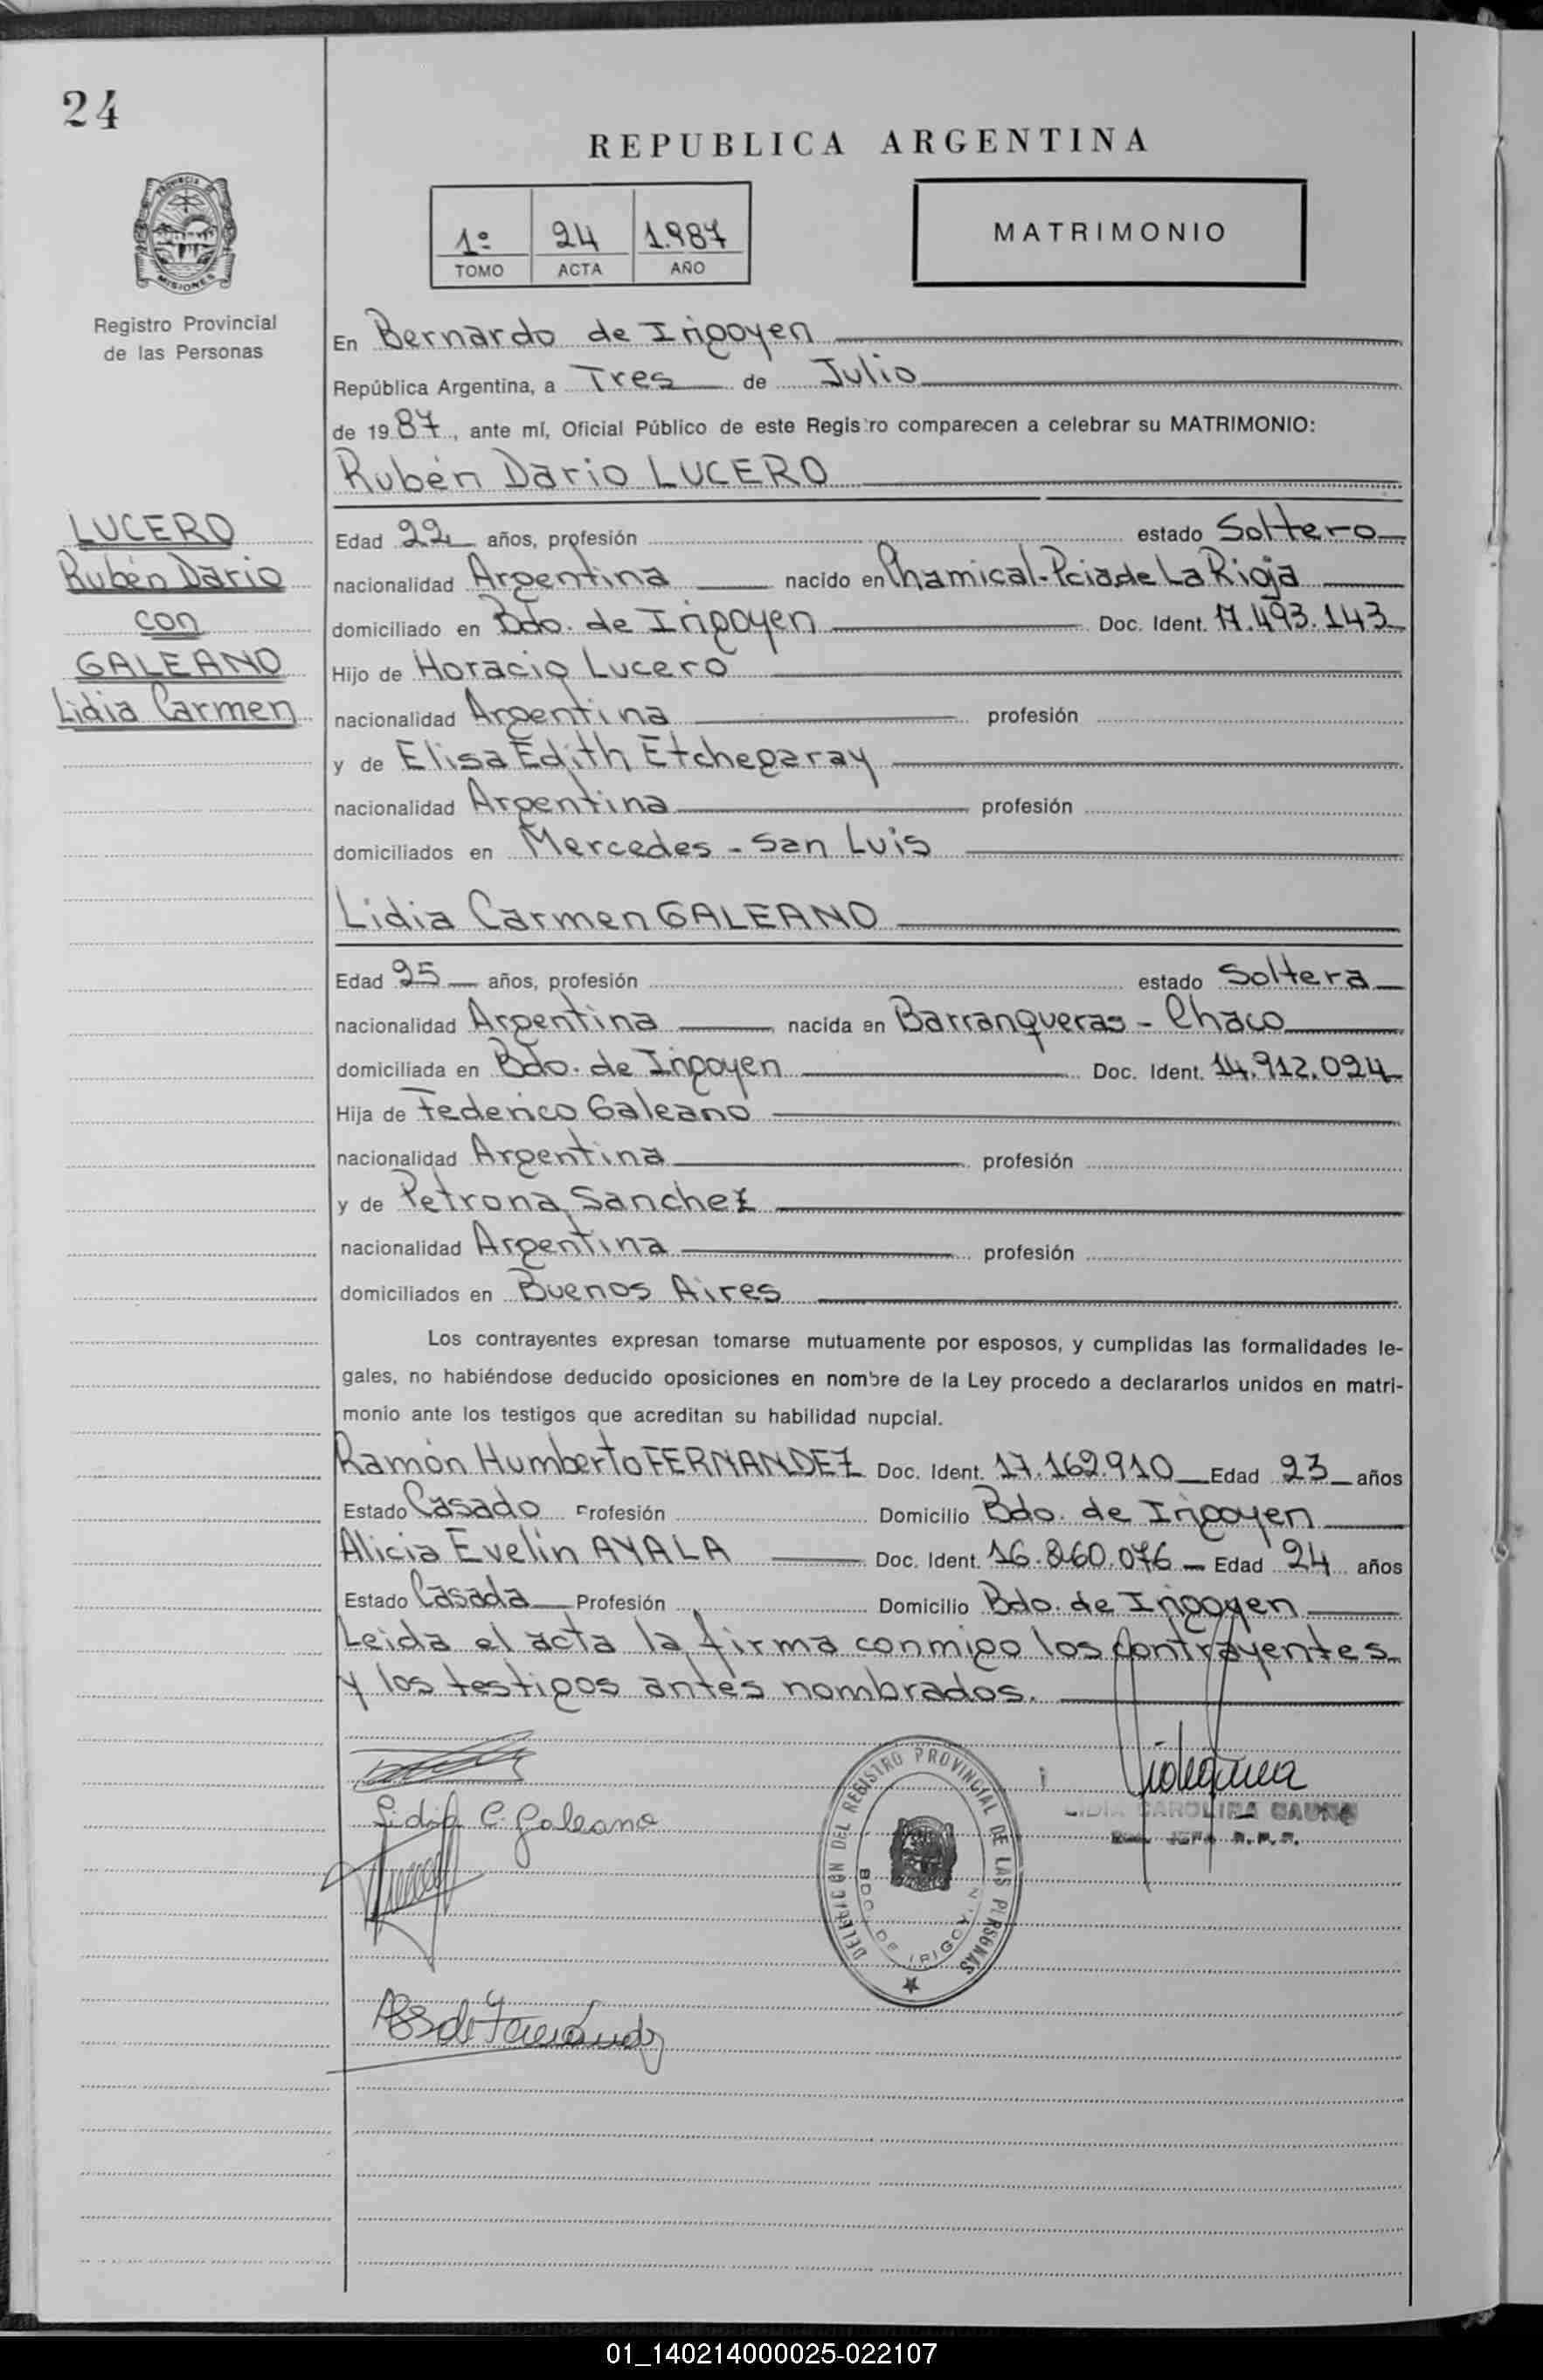 24
REPUBLICA ARGENTINA
1º 24 1.987
TOMO ACTA AÑO
MATRIMONIO
PROVINCIA DE
MISIONES
Registro Provincial
de las Personas
En Bernardo de Irigoyen
República Argentina, a Tres de Julio
de 1987, ante mí, Oficial Público de este Registro comparecen a celebrar su MATRIMONIO:
Rubén Dario LUCERO
LUCERO
Rubén Dario
con
GALEANO
Lidia Carmen
Edad 22 años, profesión estado Soltero
nacionalidad Argentina nacido en Chamical-Pcia de La Rioja
domiciliado en Bdo. de Irigoyen Doc. Ident. 17.493.143
Hijo de Horacio Lucero
nacionalidad Argentina profesión
y de Elisa Edith Etchegaray
nacionalidad Argentina profesión
domiciliados en Mercedes - San Luis
Lidia Carmen GALEANO
Edad 25 años, profesión estado Soltera
nacionalidad Argentina nacida en Barranqueras - Chaco
domiciliada en Bdo. de Irigoyen Doc. Ident. 14.912.024
Hija de Federico Galeano
nacionalidad Argentina profesión
y de Petrona Sanchez
nacionalidad Argentina profesión
domiciliados en Buenos Aires
Los contrayentes expresan tomarse mutuamente por esposos, y cumplidas las formalidades le-
gales, no habiéndose deducido oposiciones en nombre de la Ley procedo a declararlos unidos en matri-
monio ante los testigos que acreditan su habilidad nupcial.
Ramón Humberto FERNANDEZ Doc. Ident. 17.162.910 Edad 23 años
Estado Casado Profesión Domicilio Bdo. de Irigoyen
Alicia Evelin AYALA Doc. Ident. 16.860.076 Edad 24 años
Estado Casada Profesión Domicilio Bdo. de Irigoyen
Leida el acta la firma conmigo los contrayentes
y los testigos antes nombrados.
Lidia C. Galeano
DELEGACIÓN DEL REGISTRO PROVINCIAL DE LAS PERSONAS
BDO. DE IRIGOYEN
LIDIA CAROLINA
JEFA R.P.P.
de Fernández
01_140214000025-022107